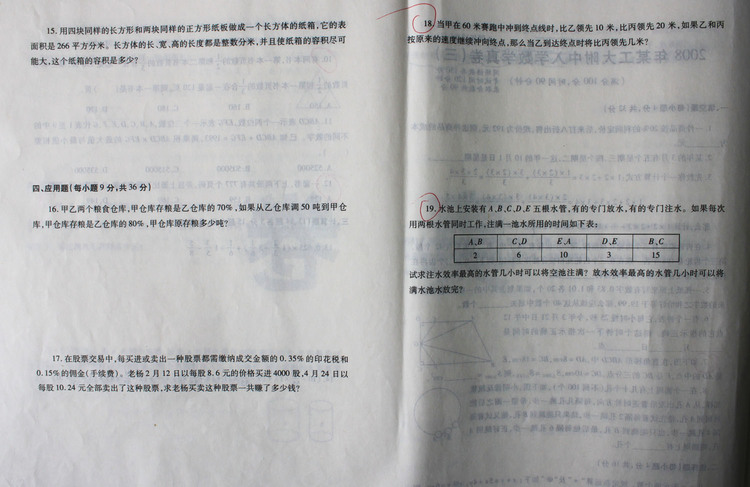 15. 用四块同样的长方形和两块同样的正方形纸板做成一个长方体的纸箱,它的表
面积是266平方分米。长方体的长、宽、高的长度都是整数分米,并且使纸箱的容积尽可
能大,这个纸箱的容积是多少?
四、应用题(每小题9分,共36分)
16. 甲乙两个粮食仓库,甲仓库存粮是乙仓库的70%,如果从乙仓库调50吨到甲仓
库,甲仓库存粮是乙仓库的80%,甲仓库原存粮多少吨?
17. 在股票交易中,每买进或卖出一种股票都需缴纳成交金额的0.35%的印花税和
0.15%的佣金(手续费)。老杨2月12日以每股8.6元的价格买进4000股,4月24日以
每股10.24元全部卖出了这种股票,求老杨买卖这种股票一共赚了多少钱?
18. 当甲在60米赛跑中冲到终点线时,比乙领先10米,比丙领先20米,如果乙和丙
按原来的速度继续冲向终点,那么当乙到达终点时将比丙领先几米?
19. 水池上安装有A,B,C,D,E五根水管,有的专门放水,有的专门注水。如果每次
用两根水管同时工作,注满一池水所用的时间如下表:
A,B C,D E,A D,E B,C
2 6 10 3 15
试求注水效率最高的水管几小时可以将空池注满?放水效率最高的水管几小时可以将
满水池水放完?